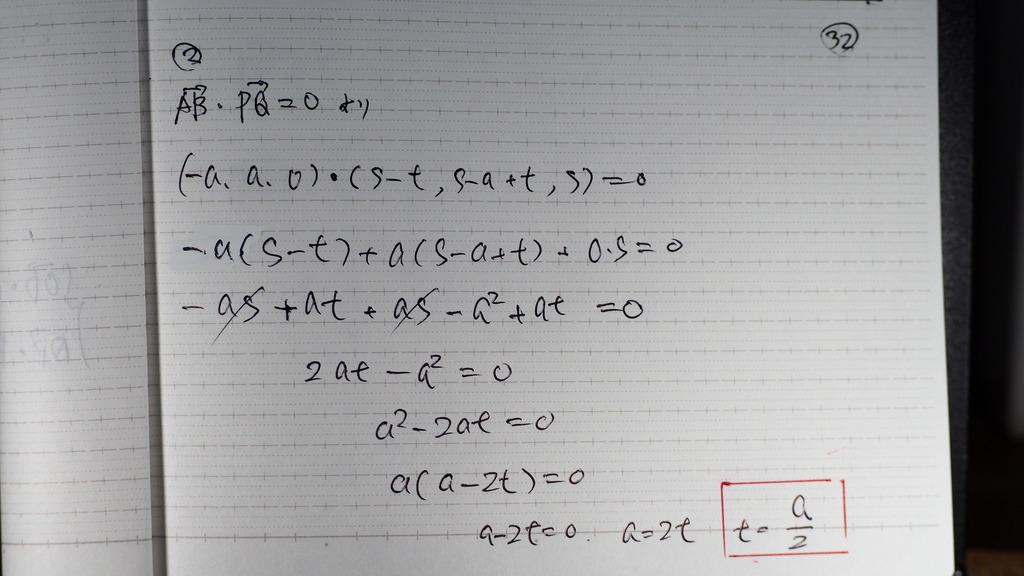 32
②
AB・PQ=0 より
(-a, a, 0)・(s-t, s-a+t, s)=0
-a(s-t)+a(s-a+t)+0・s=0
-as+at+as-a²+at=0
2at-a²=0
a²-2at=0
a(a-2t)=0
a-2t=0. a=2t t=a/2